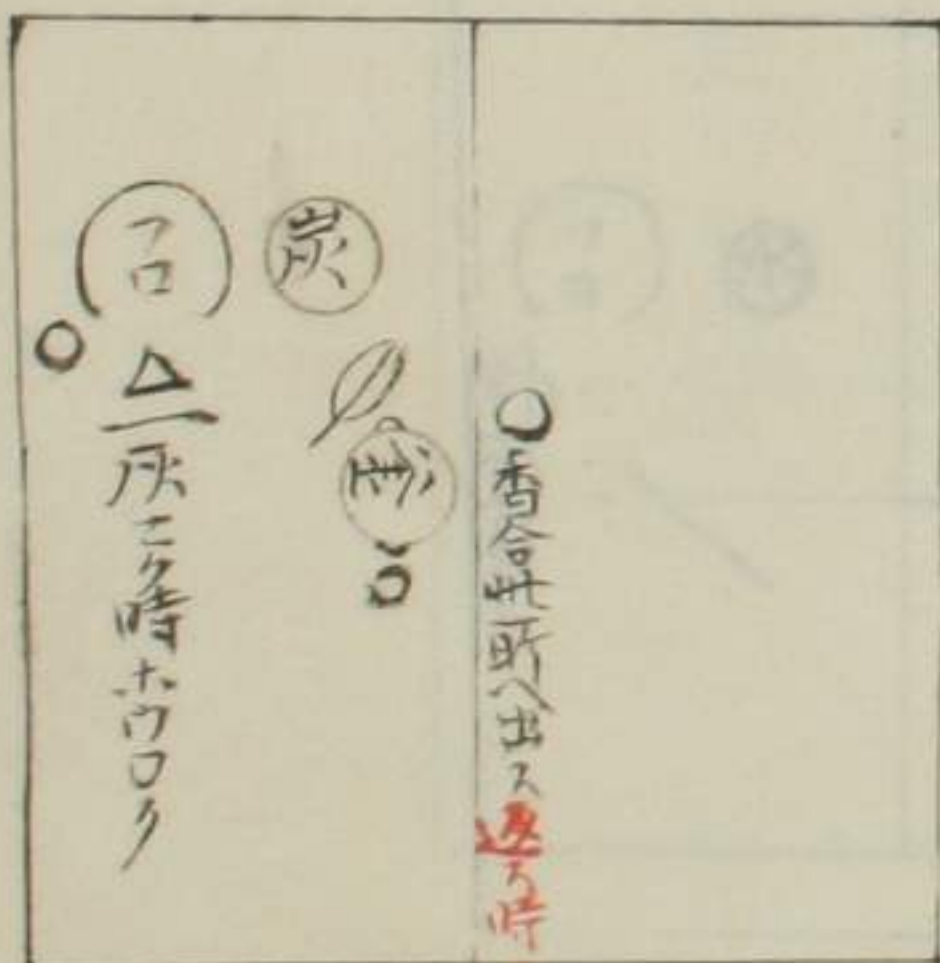 香合此所へ出ス返ス時
炭
釜
フロ
灰ニク時ホウロク